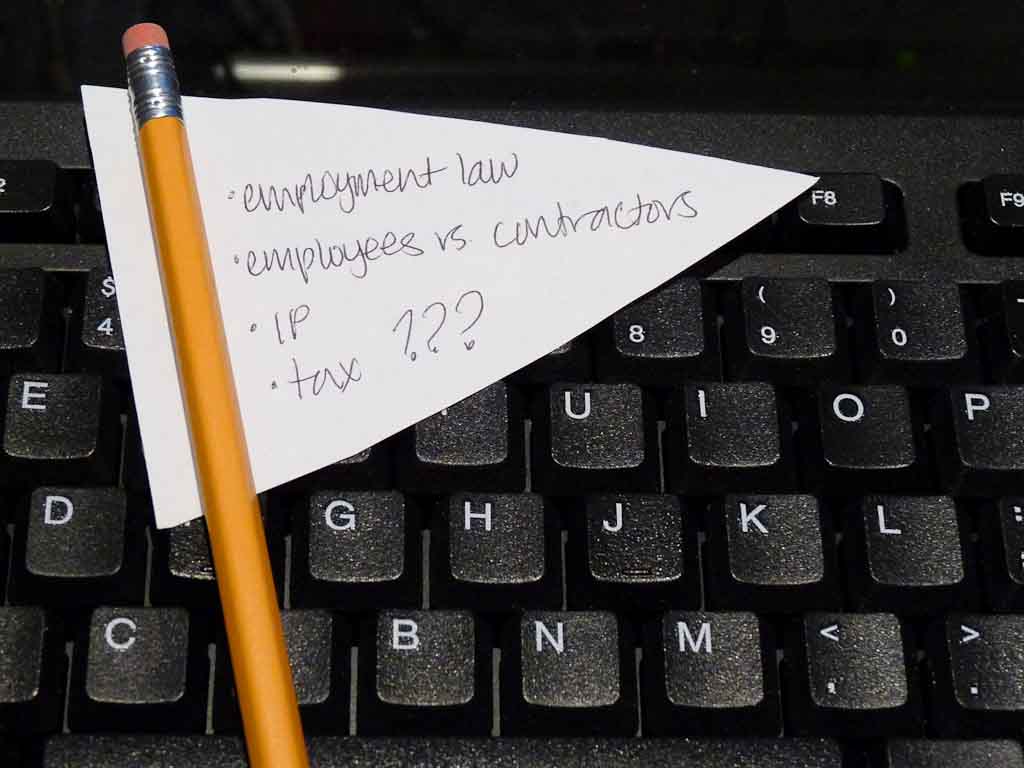 ·employment law
·employees vs. contractors
·IP
·tax ???
F8
F9
$
4
8
(
9
)
0
E
U
I
O
P
D
G
H
J
K
L
C
B
N
M
<
,
>
.